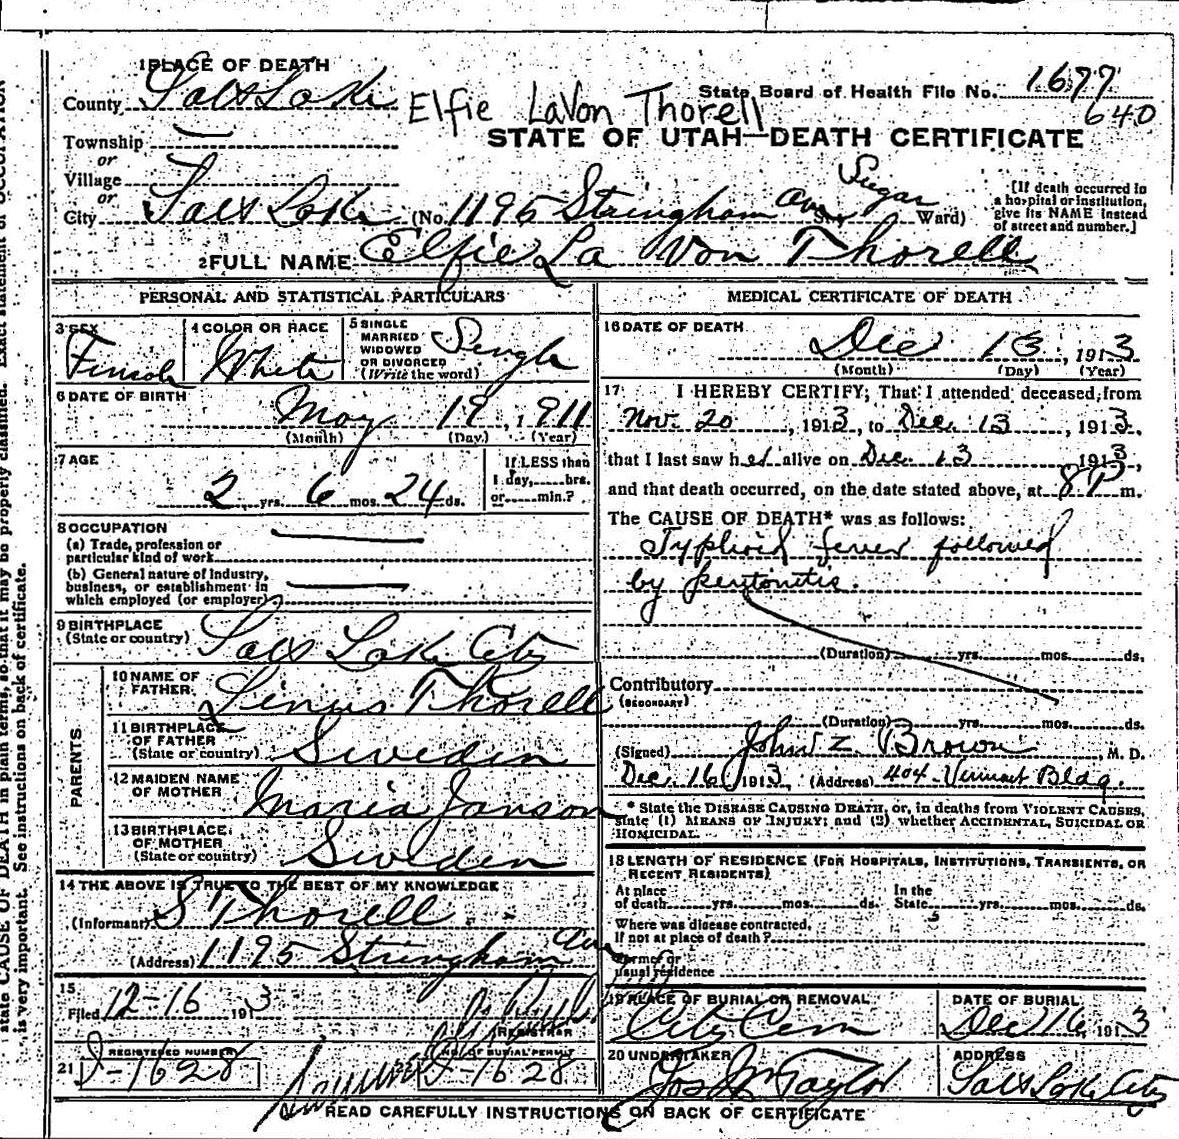 1 PLACE OF DEATH
County Salt Lake
Elfie LaVon Thorell
State Board of Health File No. 1677
640
Township
or
Village
or
STATE OF UTAH—DEATH CERTIFICATE
City Salt Lake (No. 1195 Stringham Ave St. Sugar Ward)
[If death occurred in
a hospital or institution,
give its NAME instead
of street and number.]
2 FULL NAME Elfie La Von Thorell
PERSONAL AND STATISTICAL PARTICULARS
3 SEX
Female
4 COLOR OR RACE
White
5 SINGLE
MARRIED
WIDOWED
OR DIVORCED
(Write the word)
Single
6 DATE OF BIRTH
May 19, 1911
(Month) (Day) (Year)
7 AGE
2 yrs. 6 mos. 24 ds.
If LESS than
1 day, hrs.
or min.?
8 OCCUPATION
(a) Trade, profession or
particular kind of work
(b) General nature of Industry,
business, or establishment in
which employed (or employer)
9 BIRTHPLACE
(State or country)
Salt Lake City
PARENTS
10 NAME OF
FATHER
Linus Thorell
11 BIRTHPLACE
OF FATHER
(State or country)
Sweden
12 MAIDEN NAME
OF MOTHER
Maria Janson
13 BIRTHPLACE
OF MOTHER
(State or country)
Sweden
14 THE ABOVE IS TRUE TO THE BEST OF MY KNOWLEDGE
(Informant) S Thorell
(Address) 1195 Stringham Ave
15
Filed 12-16 1913
REGISTRAR
21
REGISTERED NUMBER
I-1628
NO. OF BURIAL PERMIT
I-1628
MEDICAL CERTIFICATE OF DEATH
16 DATE OF DEATH
Dec 13, 1913
(Month) (Day) (Year)
17 I HEREBY CERTIFY; That I attended deceased from
Nov. 20, 1913, to Dec. 13, 1913,
that I last saw her alive on Dec. 13 1913,
and that death occurred, on the date stated above, at 8 P m.
The CAUSE OF DEATH* was as follows:
Typhoid fever followed
by peritonitis.
(Duration) yrs. mos. ds.
Contributory
(SECONDARY)
(Duration) yrs. mos. ds.
(Signed) John Z Brown, M. D.
Dec. 16, 1913, (Address) 404 Vermont Bldg.
* State the DISEASE CAUSING DEATH, or, in deaths from VIOLENT CAUSES,
state (1) MEANS OF INJURY; and (2) whether ACCIDENTAL, SUICIDAL OR
HOMICIDAL.
18 LENGTH OF RESIDENCE (FOR HOSPITALS, INSTITUTIONS, TRANSIENTS, OR
RECENT RESIDENTS)
At place
of death yrs. mos. ds.
In the
State yrs. mos. ds.
Where was disease contracted,
If not at place of death?
Former or
usual residence
19 PLACE OF BURIAL OR REMOVAL
City Cem
DATE OF BURIAL
Dec 16 1913
20 UNDERTAKER
Jos Wm Taylor
ADDRESS
Salt Lake City
READ CAREFULLY INSTRUCTIONS ON BACK OF CERTIFICATE
state CAUSE OF DEATH in plain terms, so that it may be properly classified. Exact statement of OCCUPATION
is very important. See instructions on back of certificate.